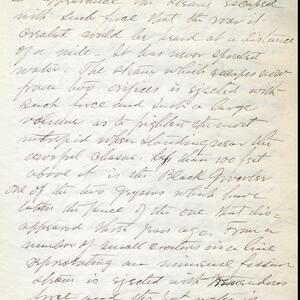 appearance the steam escaped
with such force that the roar it
created could be heard at a distance
of a mile. It has never spouted
water. The steam which escapes now
from two orifices is ejected with
such force and such a large
volume as to frighten the most
intrepid when standing near the
awful chasm. Less than 100 feet
above it is the Black Growler
one of the two geysers which have
taken the place of the one that dis-
appeared three years ago. From a
number of small craters in a line
representing an unusual fashion
steam is ejected with
force and the hot water is